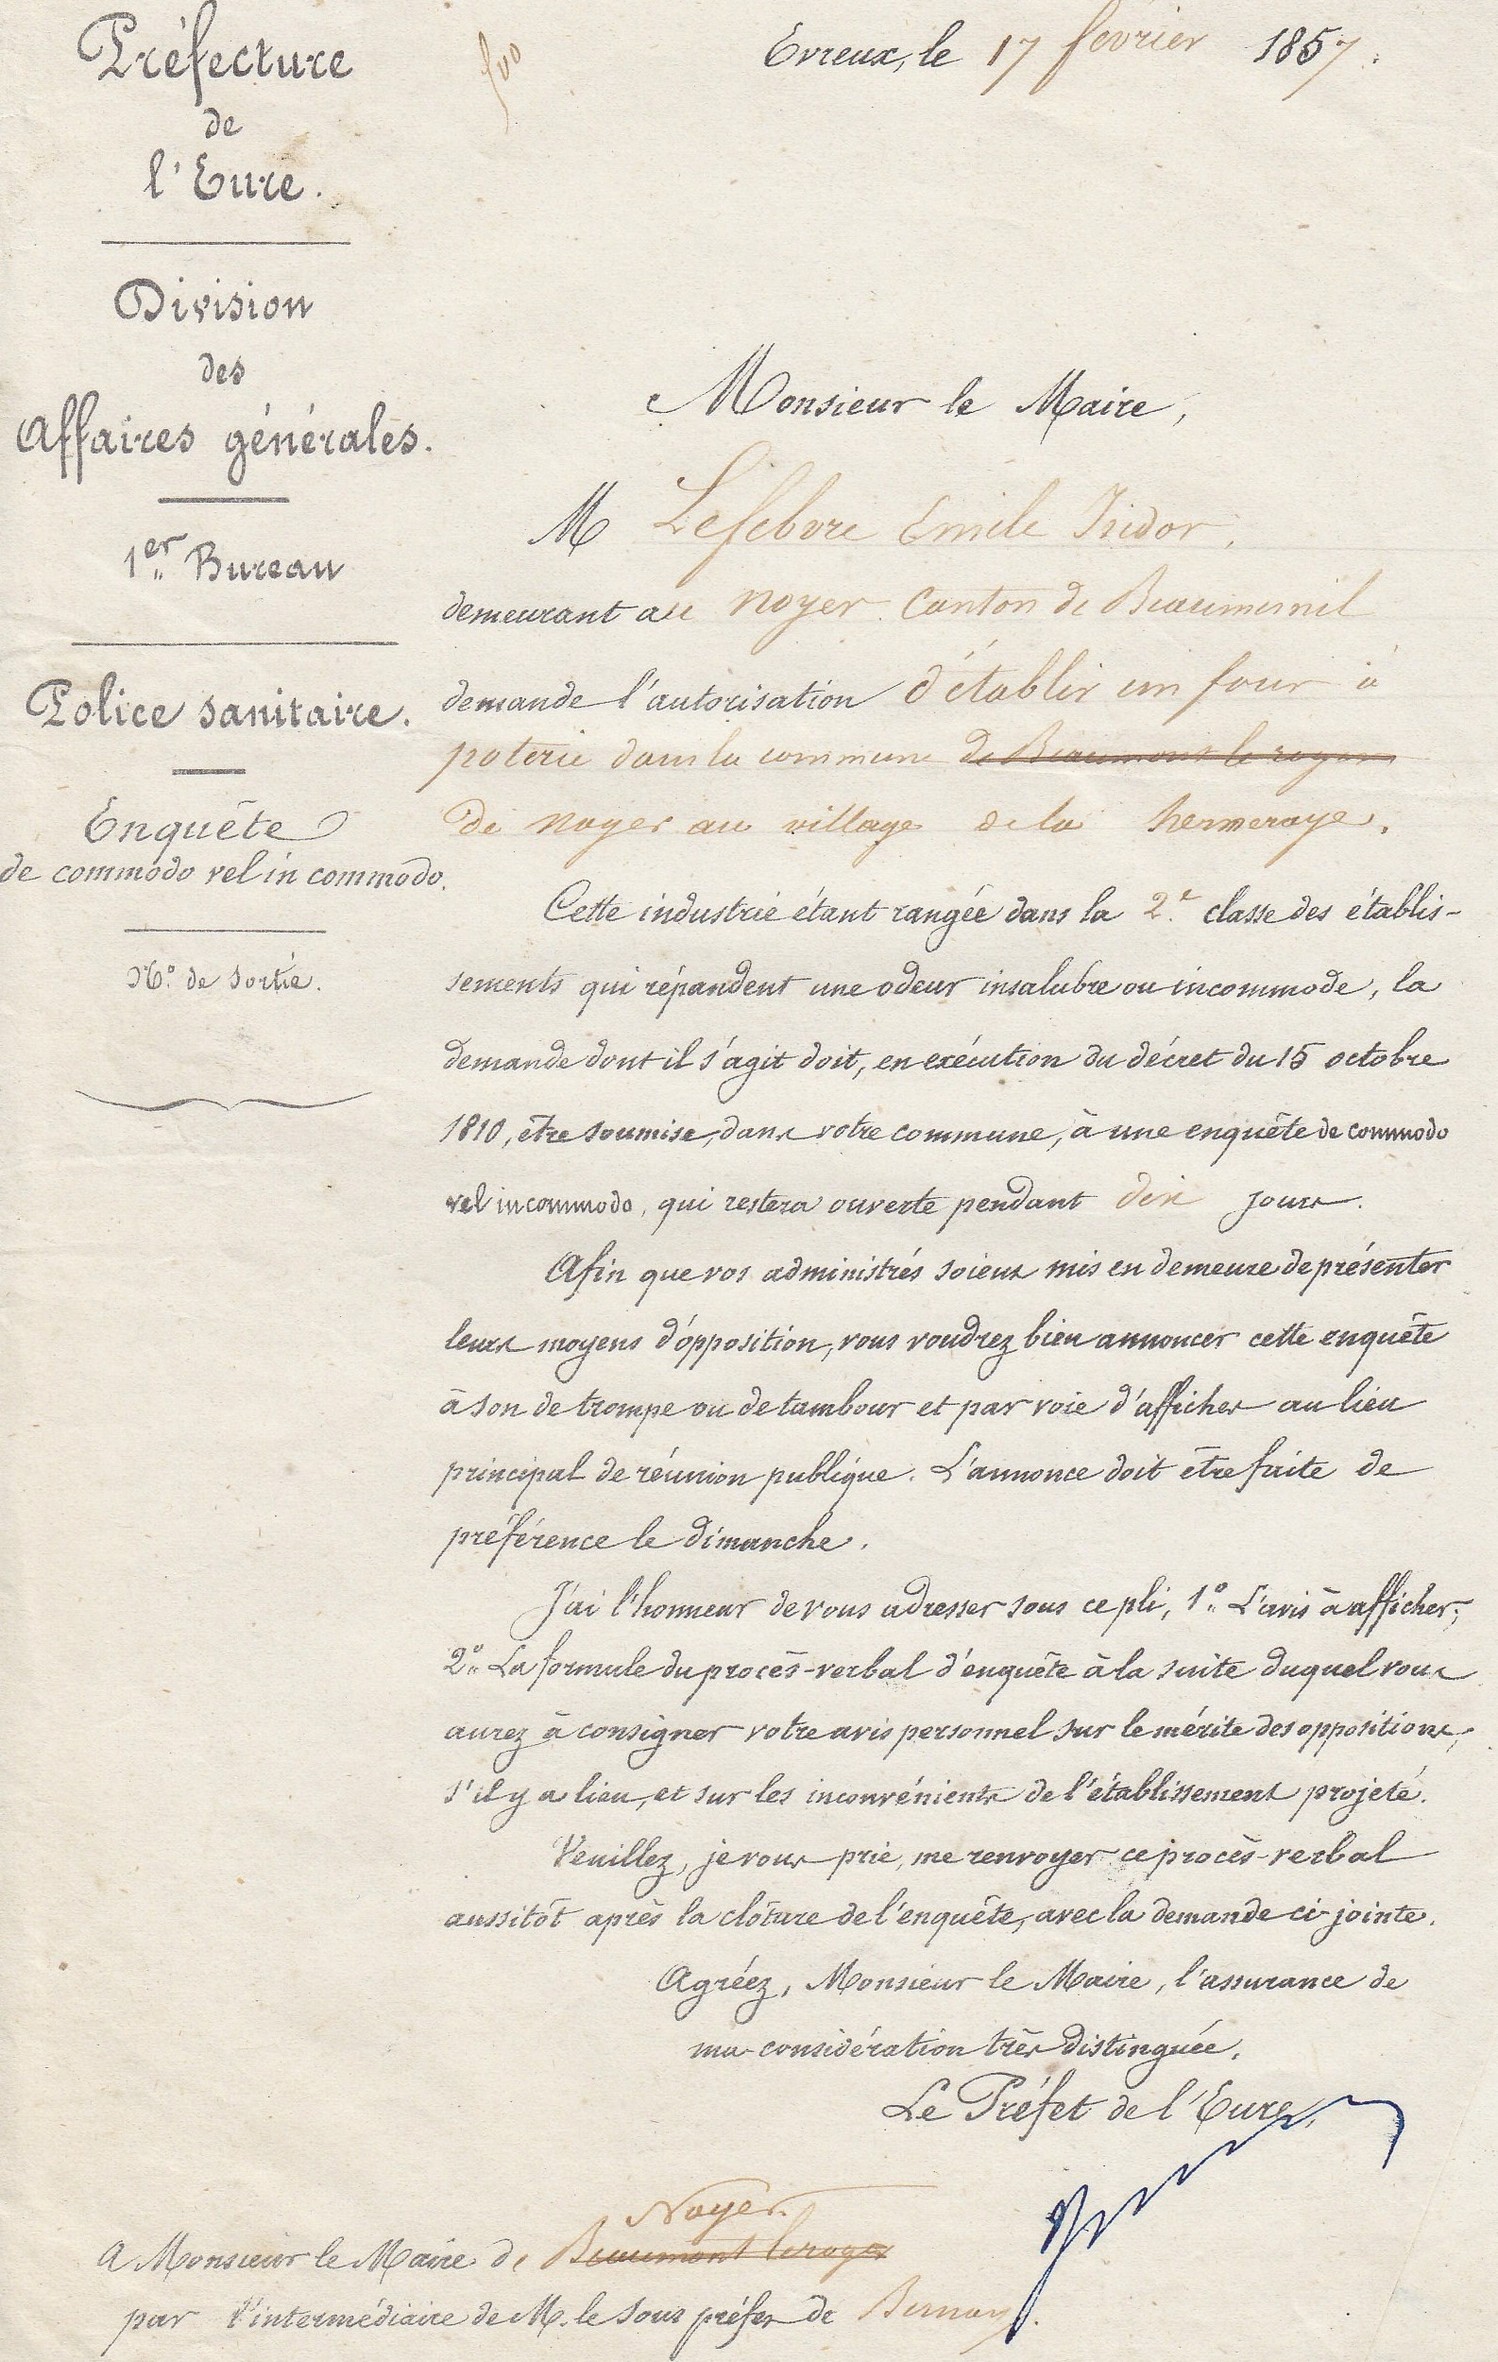 Préfecture
de
l'Eure.
Division
des
Affaires générales.
1er Bureau
Police sanitaire.
Enquête
de commodo vel in commodo.
No. de sortie.
Evreux, le 17 février 1857.
Monsieur le Maire,
M Lefebvre Emile Isidor,
demeurant au noyer Canton de Beaumesnil
demande l'autorisation d'établir un four à
poterie dans la commune de Beaumont le roger
de noyer au village de la hermeraye.
Cette industrie étant rangée dans la 2e classe des établis-
sements qui répandent une odeur insalubre ou incommode, la
demande dont il s'agit doit, en exécution du décret du 15 octobre
1810, être soumise, dans votre commune, à une enquête de commodo
vel incommodo, qui restera ouverte pendant dix jours.
Afin que vos administrés soient mis en demeure de présenter
leurs moyens d'opposition, vous voudrez bien annoncer cette enquête
à son de trompe ou de tambour et par voie d'affiches au lieu
principal de réunion publique. L'annonce doit être faite de
préférence le dimanche.
J'ai l'honneur de vous adresser sous ce pli, 1o. L'avis à afficher;
2o. La formule du procès-verbal d'enquête à la suite duquel vous
aurez à consigner votre avis personnel sur le mérite des oppositions,
s'il y a lieu, et sur les inconvénients de l'établissement projeté.
Veuillez, je vous prie, me renvoyer ce procès-verbal
aussitôt après la clôture de l'enquête, avec la demande ci-jointe.
Agréez, Monsieur le Maire, l'assurance de
ma considération très distinguée.
Le Préfet de l'Eure,
Noyer.
A Monsieur le Maire de Beaumont le roger
par l'intermédiaire de M. le sous préfet de Bernay.